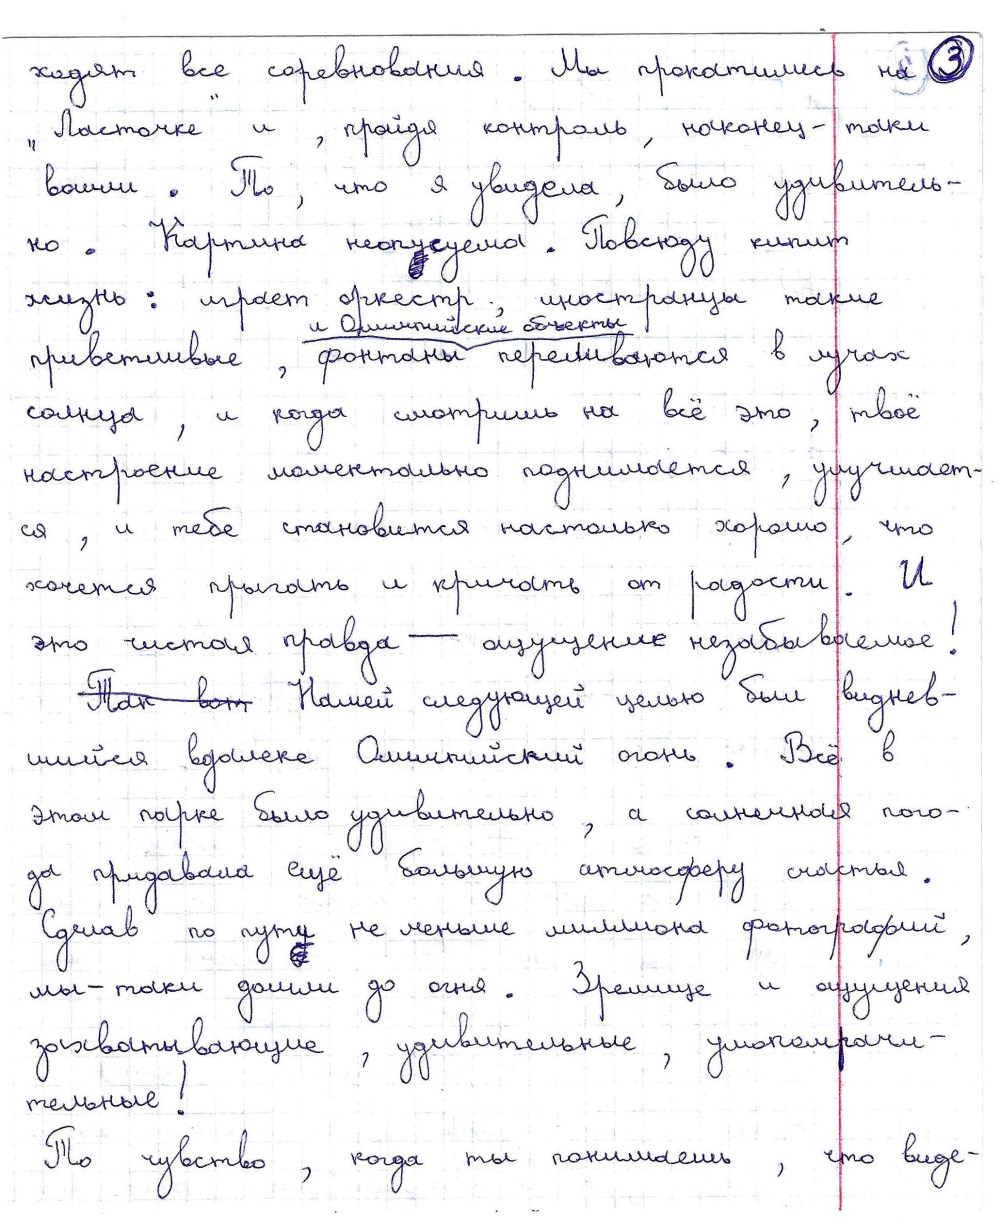 3
ходят все соревнования. Мы прокатились на
„Ласточке" и, пройдя контроль, наконец-таки
вошли. То, что я увидела, было удивитель-
но. Картина неописуема. Повсюду кипит
жизнь: играет оркестр, иностранцы такие
и Олимпийские объекты
приветливые, фонтаны переливаются в лучах
солнца, и когда смотришь на всё это, твоё
настроение моментально поднимается, улучшает-
ся, и тебе становится настолько хорошо, что
хочется прыгать и кричать от радости. И
это чистая правда — ощущение незабываемое!
Так вот Нашей следующей целью был виднев-
шийся вдалеке Олимпийский огонь. Всё в
этом парке было удивительно, а солнечная пого-
да придавала ещё большую атмосферу счастья.
Сделав по пути не меньше миллиона фотографий,
мы-таки дошли до огня. Зрелище и ощущения
захватывающие, удивительные, умопомрачи-
тельные!
То чувство, когда ты понимаешь, что виде-